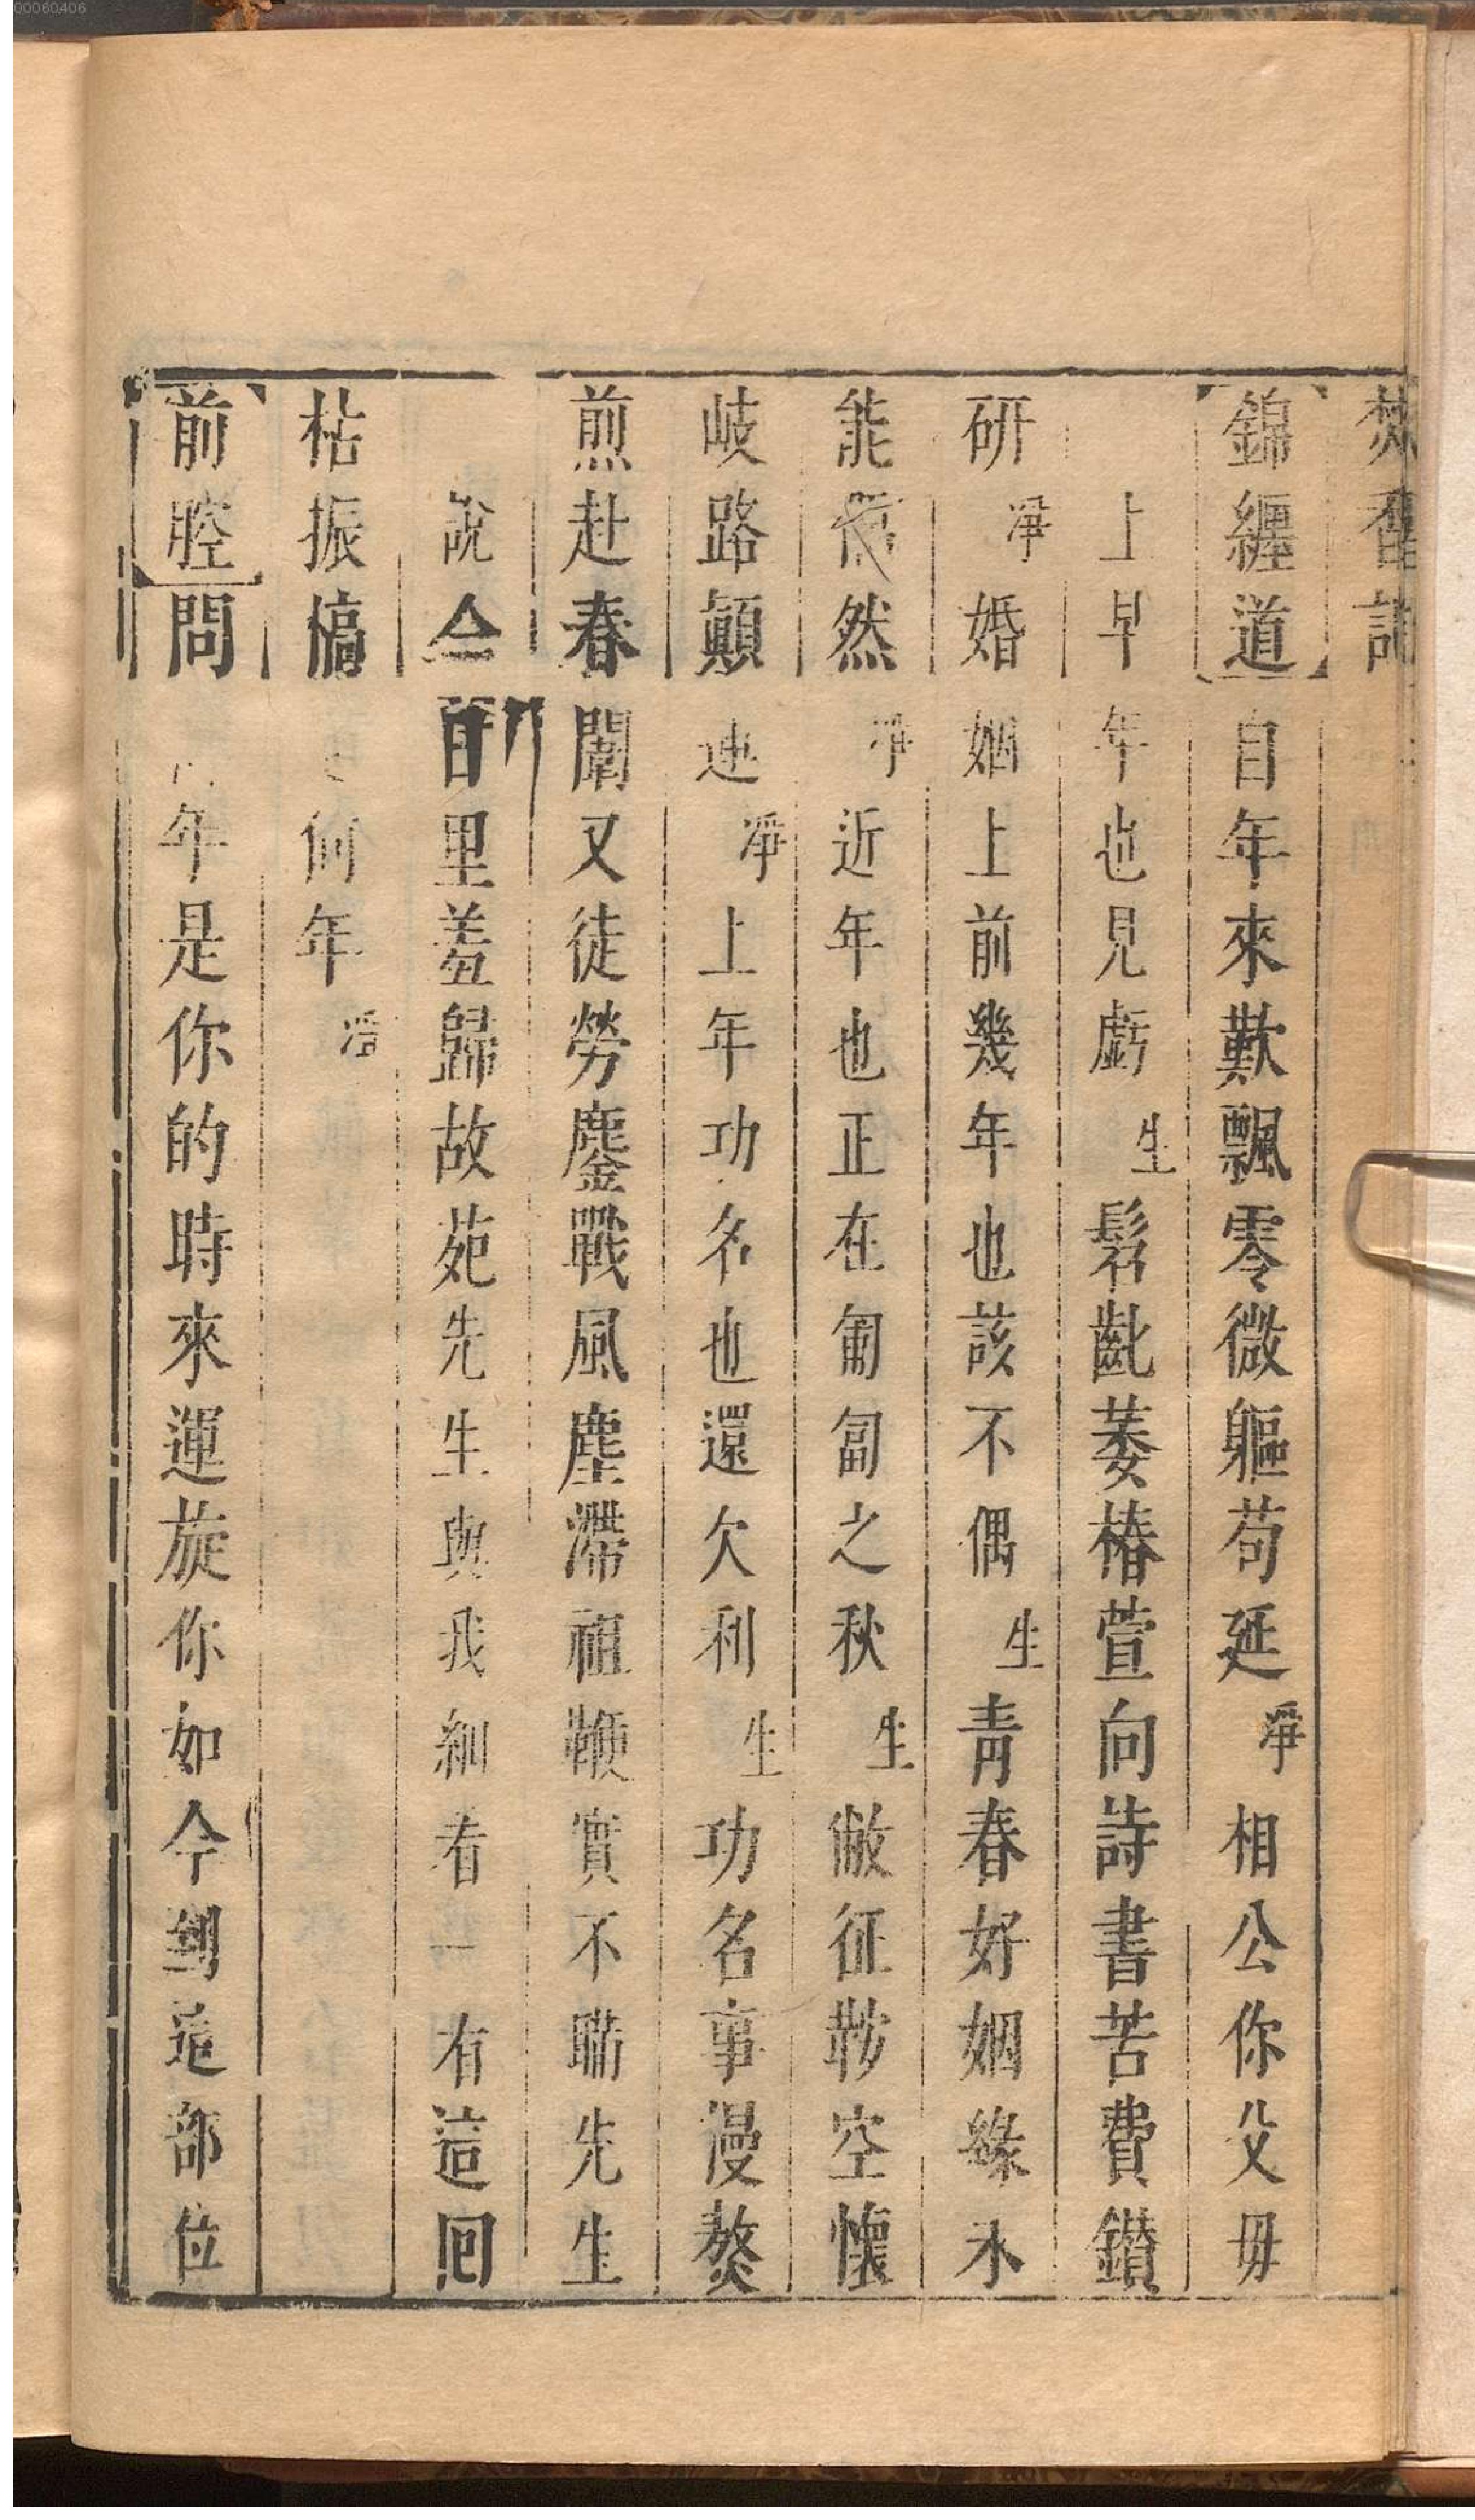 00060406
焚香記
【錦纏道】自年來歎飄零微軀苟延淨相公你父母
上早年也見虧生髫齔萎椿萱向詩書苦費鑽
研淨婚姻上前幾年也該不偶生青春好姻緣未
能偶然淨近年也正在匍匐之秋生儆征鞍空懷
岐路顛迍淨上年功名也還欠利生功名事漫熬
煎赴春闈又徒勞鏖戰風塵滯祖鞭實不瞞先生
說今百里羞歸故苑先生與我細看一有這囘
枯振槁何年淨
【前腔】問年是你的時來運旋你如今到這部位